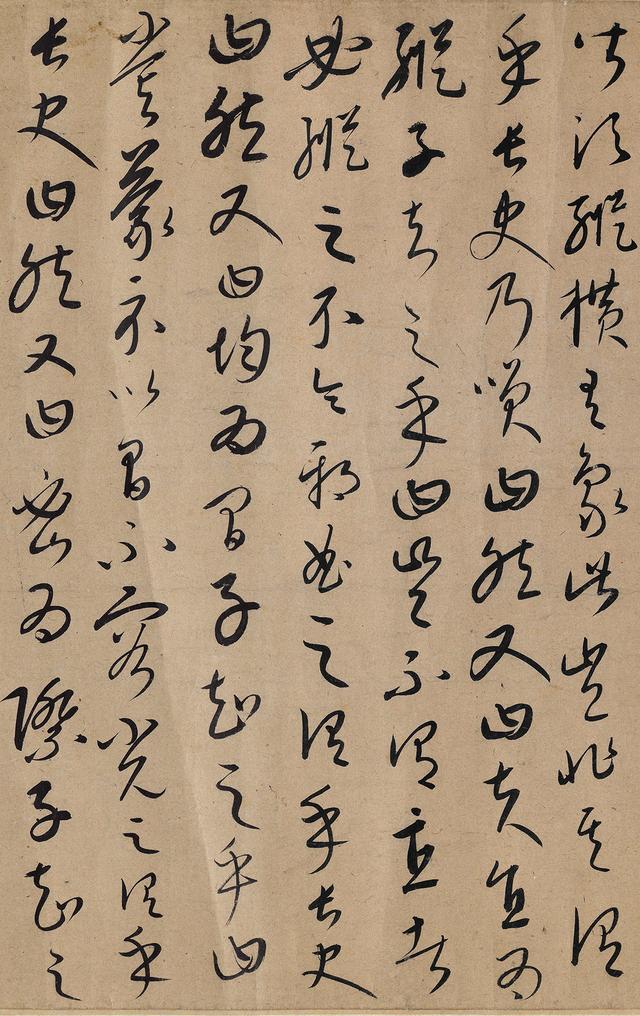 皆須縱橫有象此豈非其謂
乎長史乃笑曰然又曰夫直為
縱子知之乎曰豈不謂直者
必縱之不令邪曲之謂乎長史
曰然又曰均為間子知之乎曰
嘗蒙示以間不容光之謂乎
長史曰然又曰密為際子知之